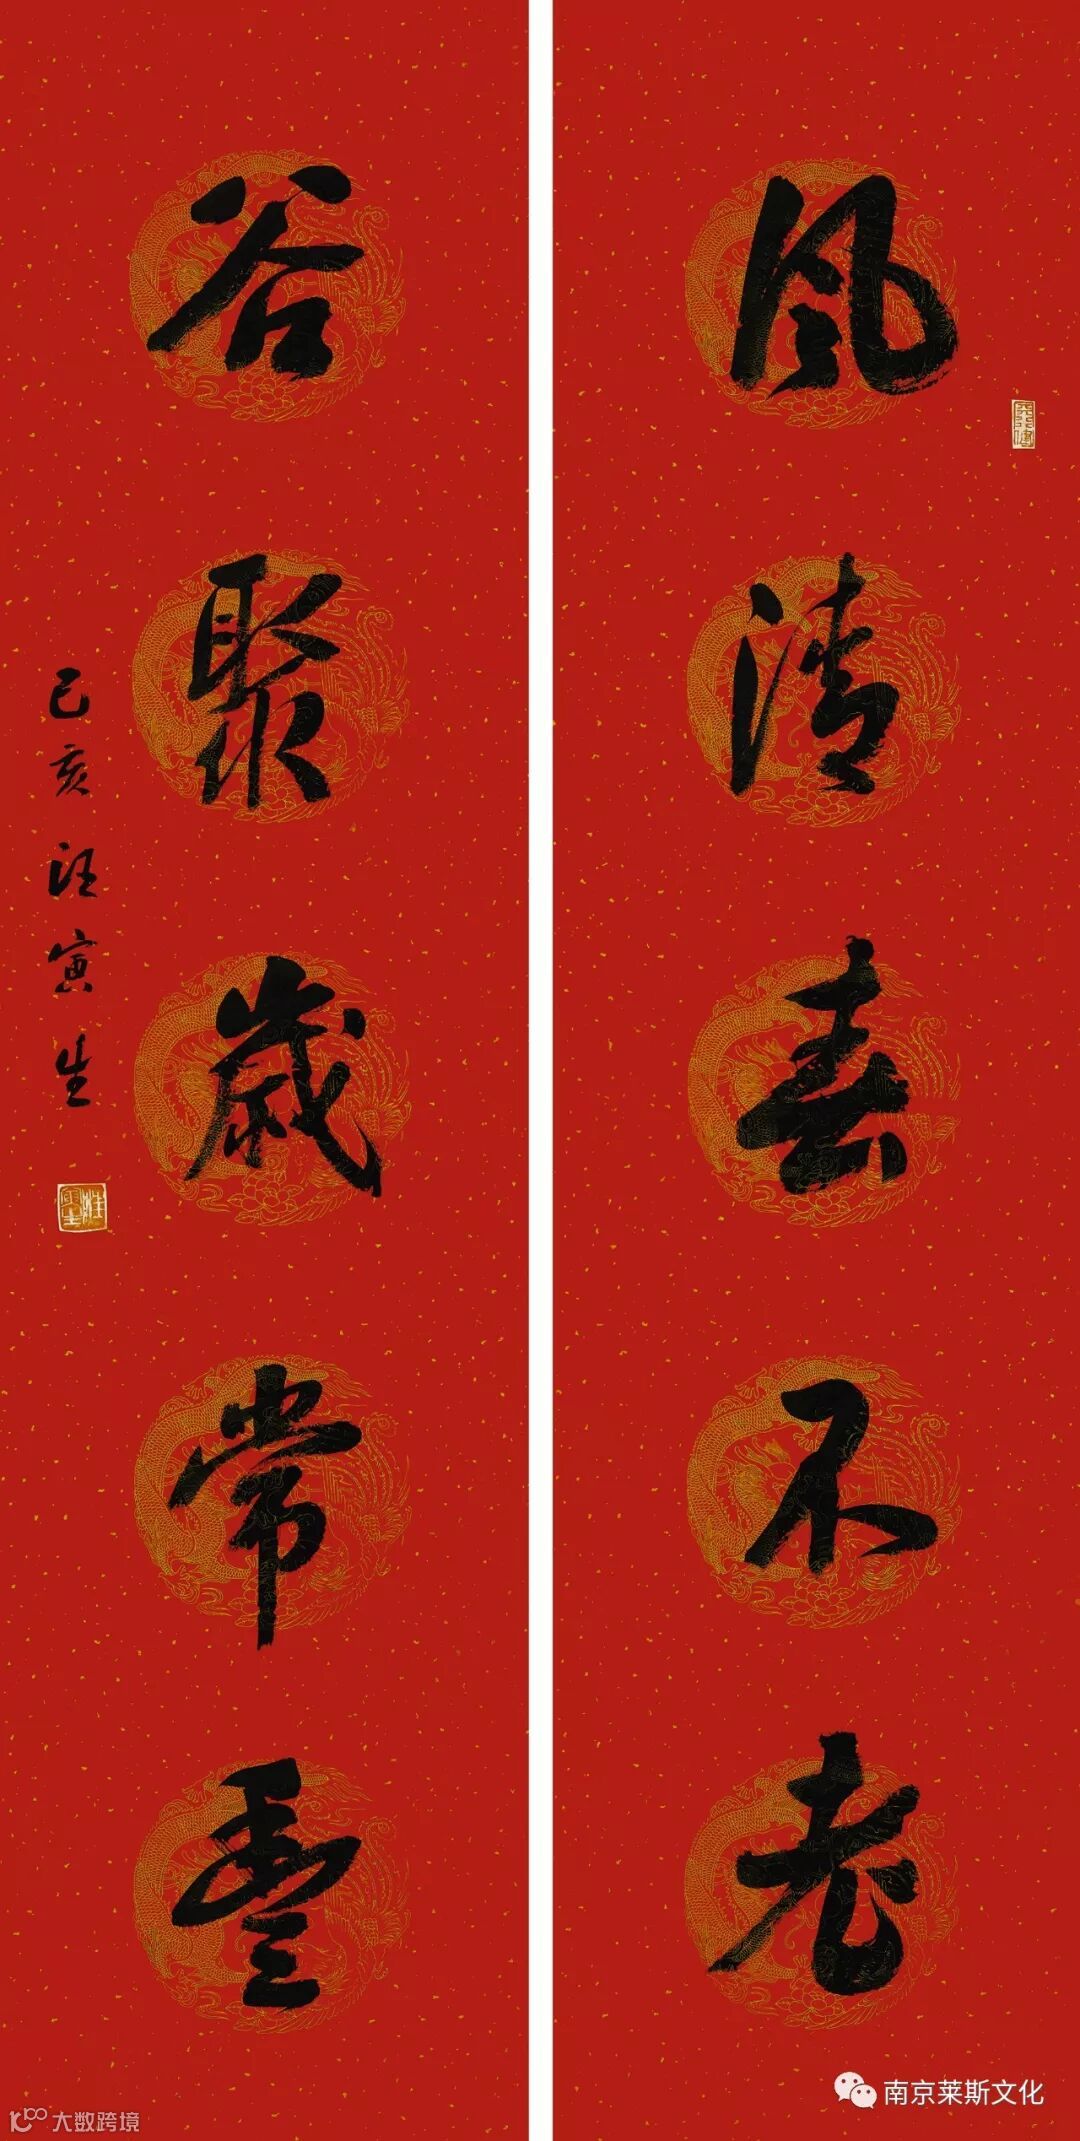 风清春不老
谷聚歲常豐
己亥汪寅生
南京莱斯文化
大数跨境